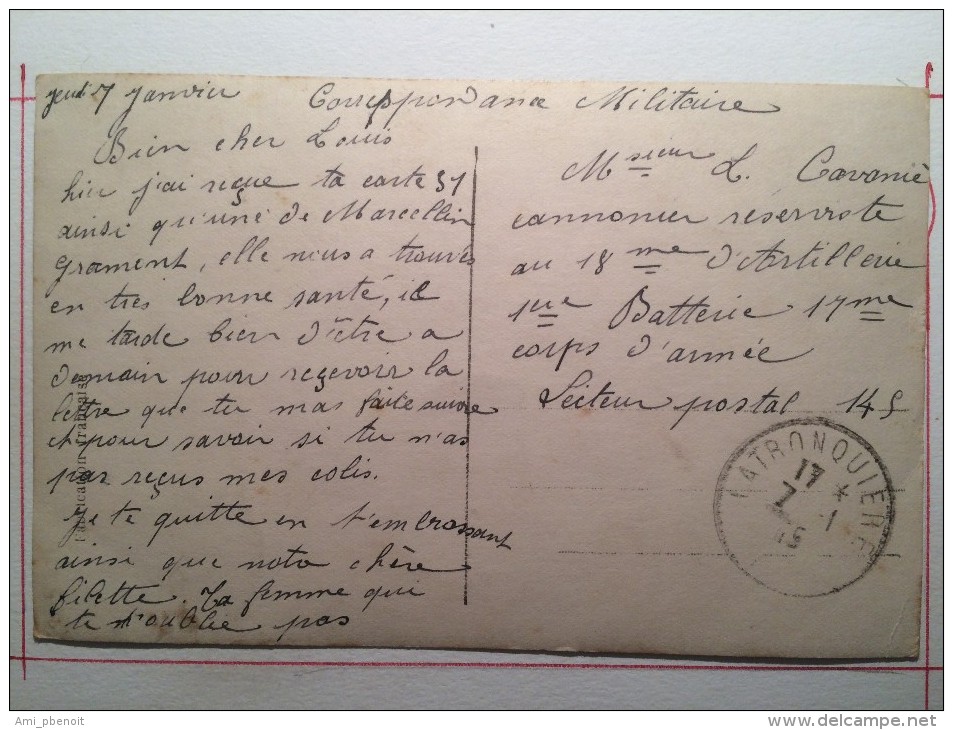 jeudi 7 janvier
Correspondance Militaire
Bien cher Louis
hier j'ai reçue ta carte 31
ainsi qu'une de Marcellin
Grament, elle nous a trouvés
en très bonne santé, il
me tarde bien d'être a
demain pour reçevoir la
lettre que tu mas faite suivre
et pour savoir si tu n'as
pas reçus mes colis.
Je te quitte en t'embrassant
ainsi que notre chère
filette. Ta femme qui
te n'oublie pas
Msieur L. Cavanié
cannonier réserviste
au 18me d'Artillerie
1ere Batterie 17me
corps d'armée
Secteur postal 145
LATRONQUIERE
17 *
7 - 1
15
Fabrication française
Ami_pbenoit
delcampe.net